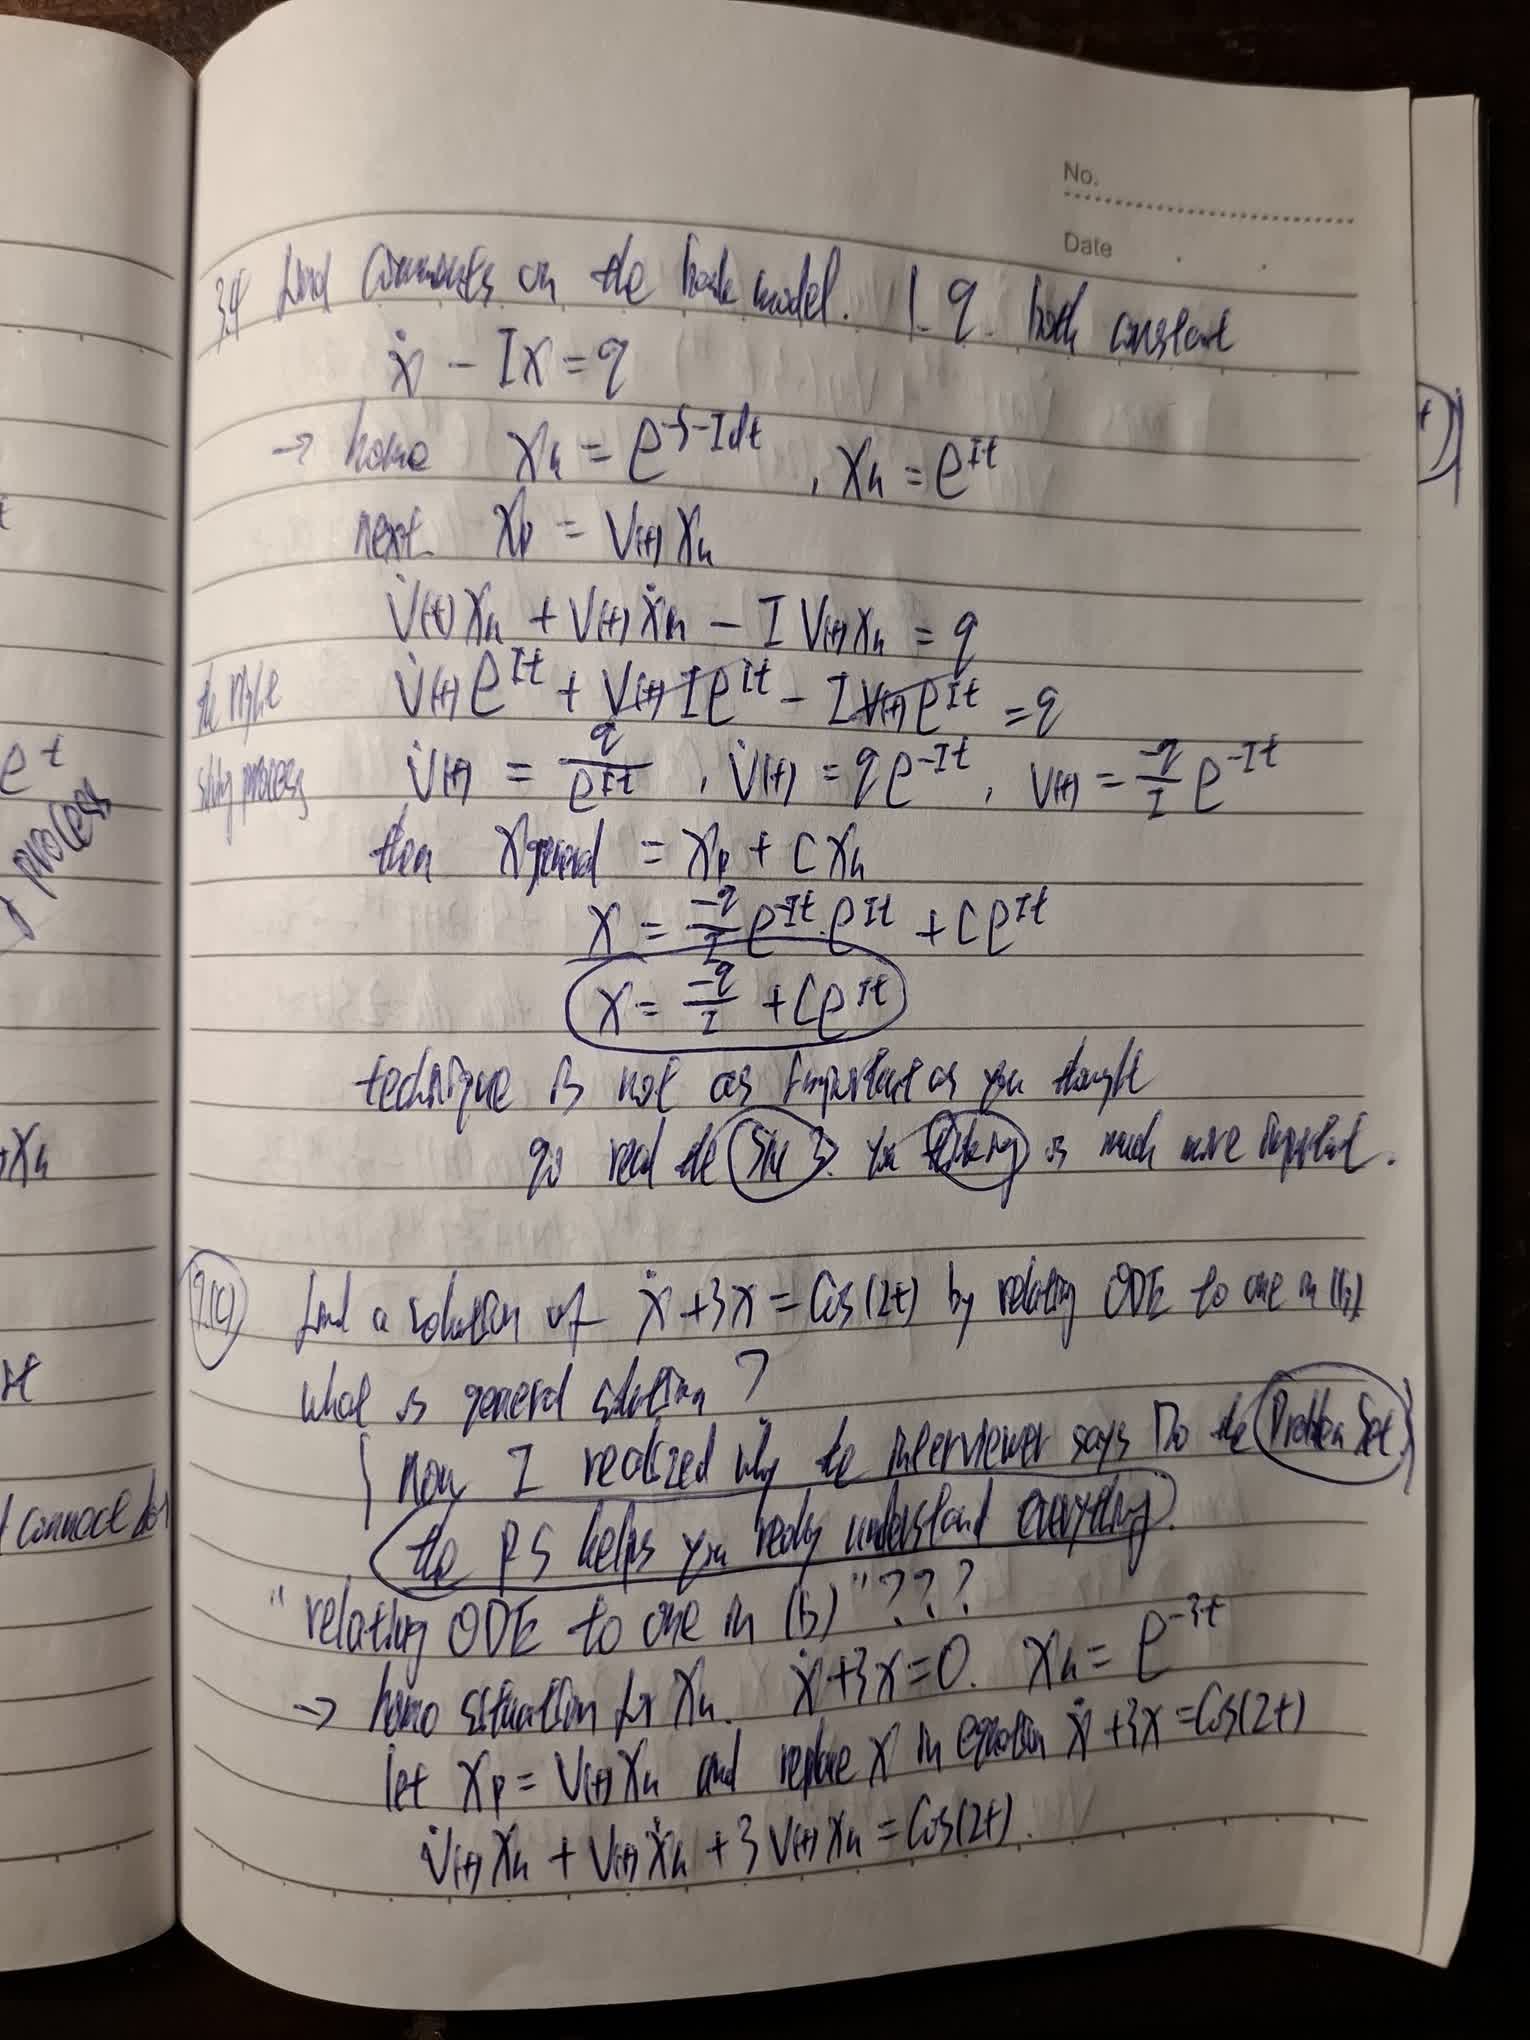 No.
Date
3.4 comments on the bank model. I. q. both constant
ẋ - Ix = q
→ homo xₕ = e^{-∫-Idt}, xₕ = e^{It}
next xₚ = v(t) xₕ
v̇(t)xₕ + v(t)ẋₕ - I v(t)xₕ = q
the v̇(t)e^{It} + v(t)Ie^{It} - Iv(t)e^{It} = q
process v̇(t) = q/e^{It}, v̇(t) = qe^{-It}, v(t) = -q/I e^{-It}
then x general = xₚ + cxₕ
x = -q/I e^{-It}·e^{It} + ce^{It}
x = -q/I + ce^{It}
technique is not as important as you thought
go read the is much more important.
find a solution of ẋ+3x = Cos(2t) by relating ODE to one in (b)
what is general solution?
now I realized why the interviewer says Do the Problem Set
the PS helps you really understand everything.
"relating ODE to one in (b)"???
→ homo situation for xₕ. ẋ+3x=0. xₕ = e^{-3t}
let xₚ = v(t)xₕ and replace x in equation ẋ+3x = Cos(2t)
v̇(t)xₕ + v(t)ẋₕ + 3v(t)xₕ = Cos(2t).
et
process
+xₕ
connect